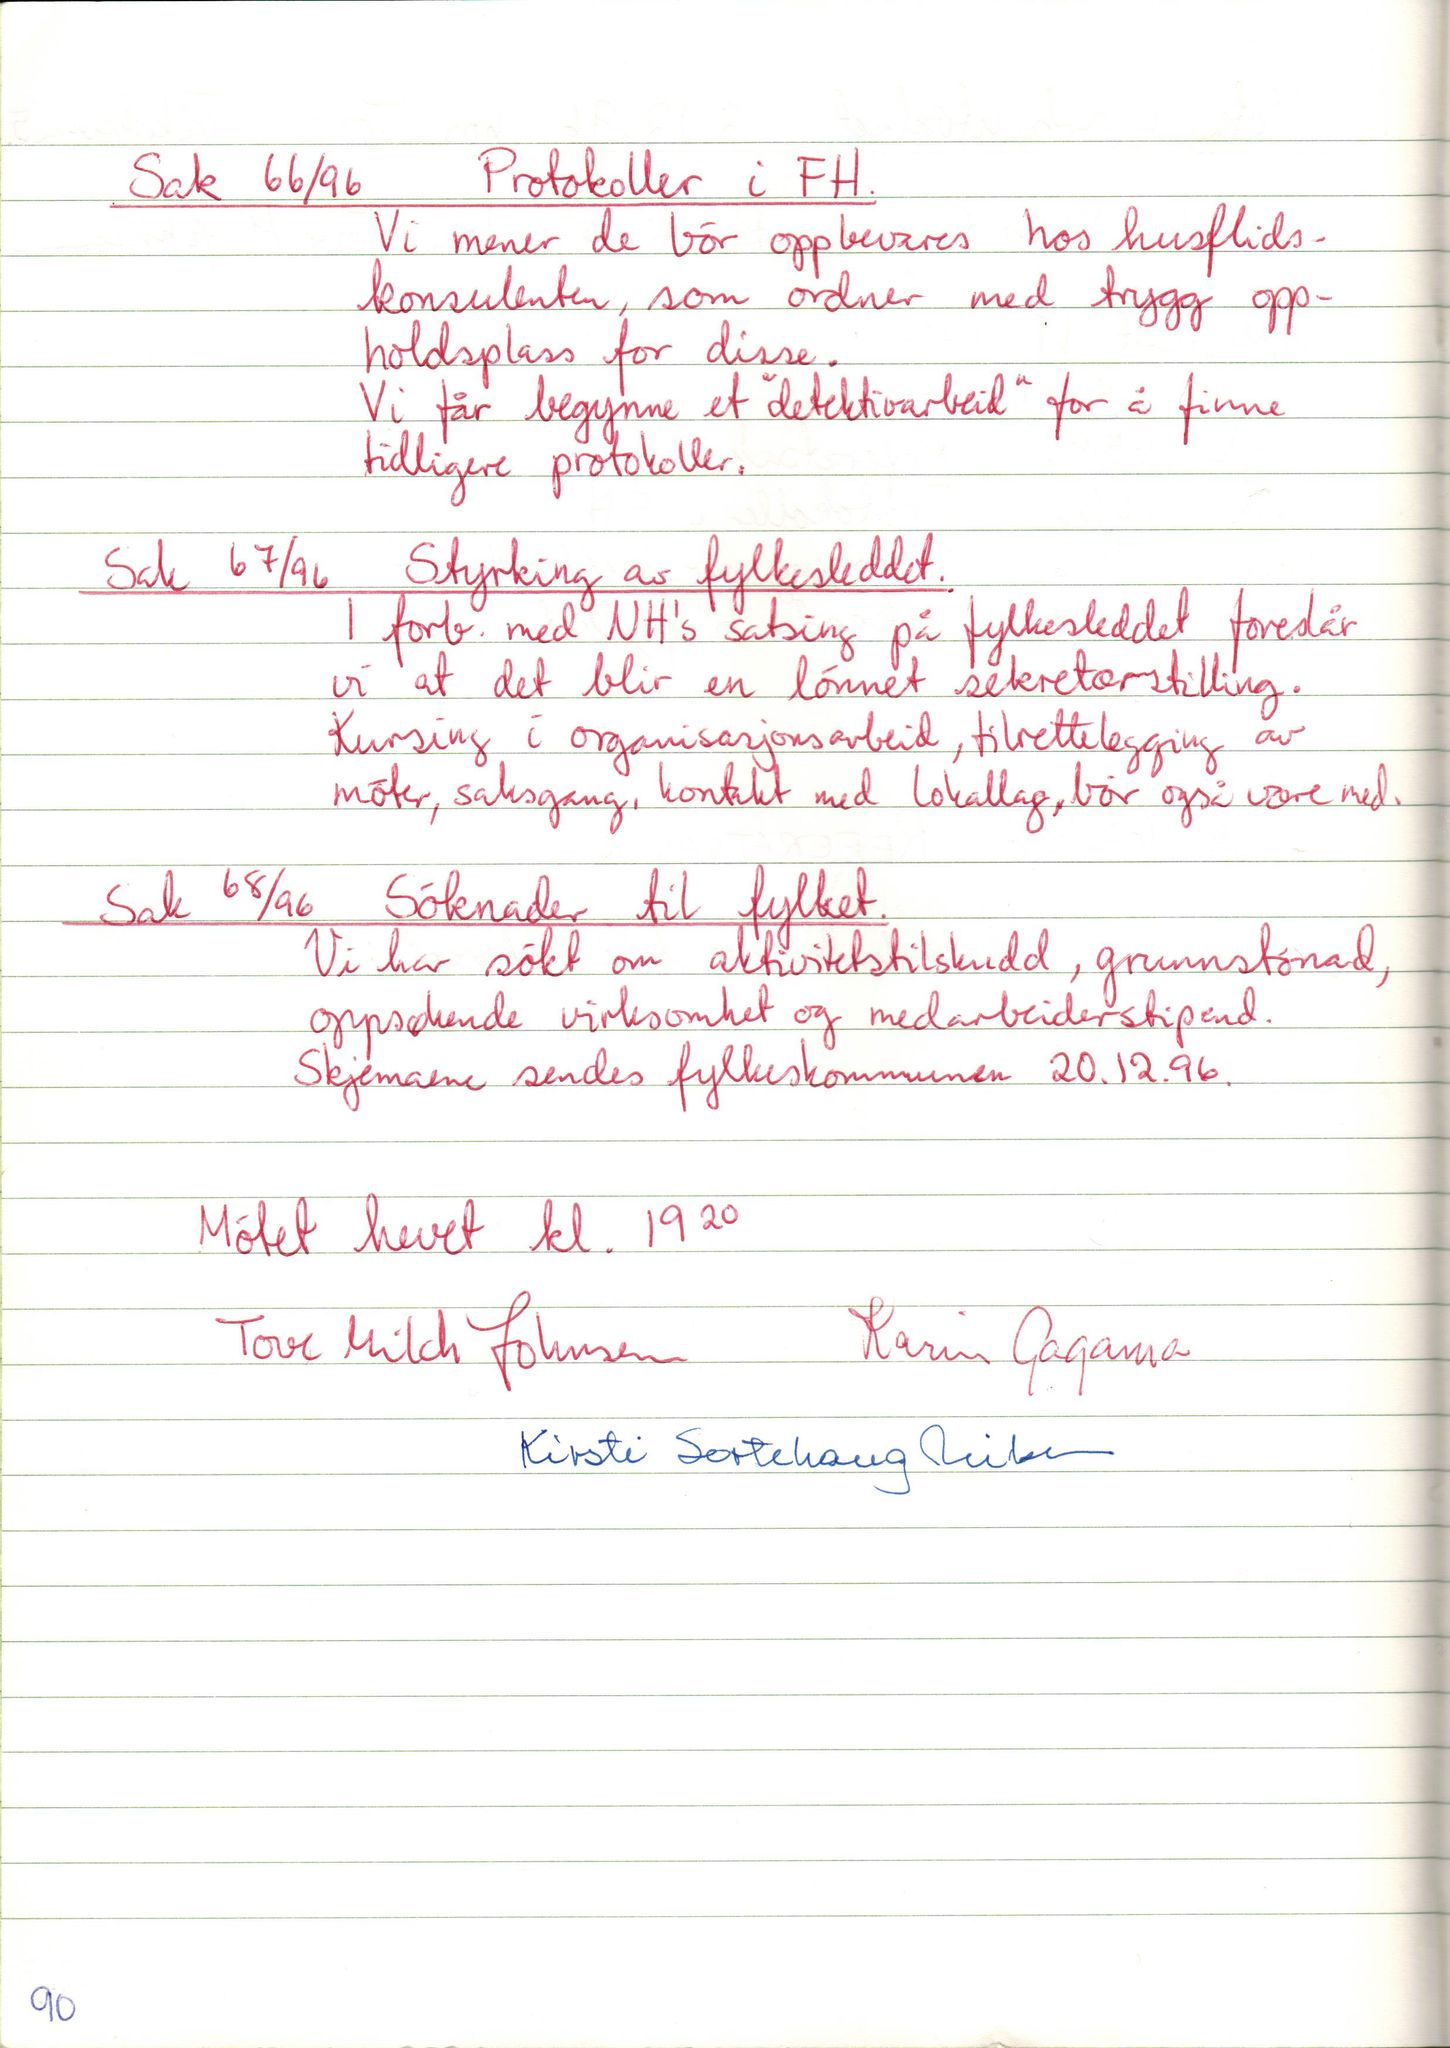 Sak 66/96 Protokoller i FH.
Vi mener de bör oppbevares hos husflids-
konsulenten, som ordner med trygg opp-
holdsplass for disse.
Vi får begynne et "detektivarbeid" for å finne
tidligere protokoller.
Sak 67/96 Styrking av fylkesleddet.
I forb. med NH's satsing på fylkesleddet foreslår
vi at det blir en lönnet sekretærstilling.
Kursing i organisasjonsarbeid, tilrettelegging av
möter, saksgang, kontakt med lokallag, bör også være med.
Sak 68/96 Söknader til fylket.
Vi har sökt om aktivitetstilskudd, grunnstönad,
oppsøkende virksomhet og medarbeiderstipend.
Skjemaene sendes fylkeskommunen 20.12.96.
Mötet hevet kl. 19 20
Tove Milch Johnsen Karin Gagama
Kirsti Sortehaug
90